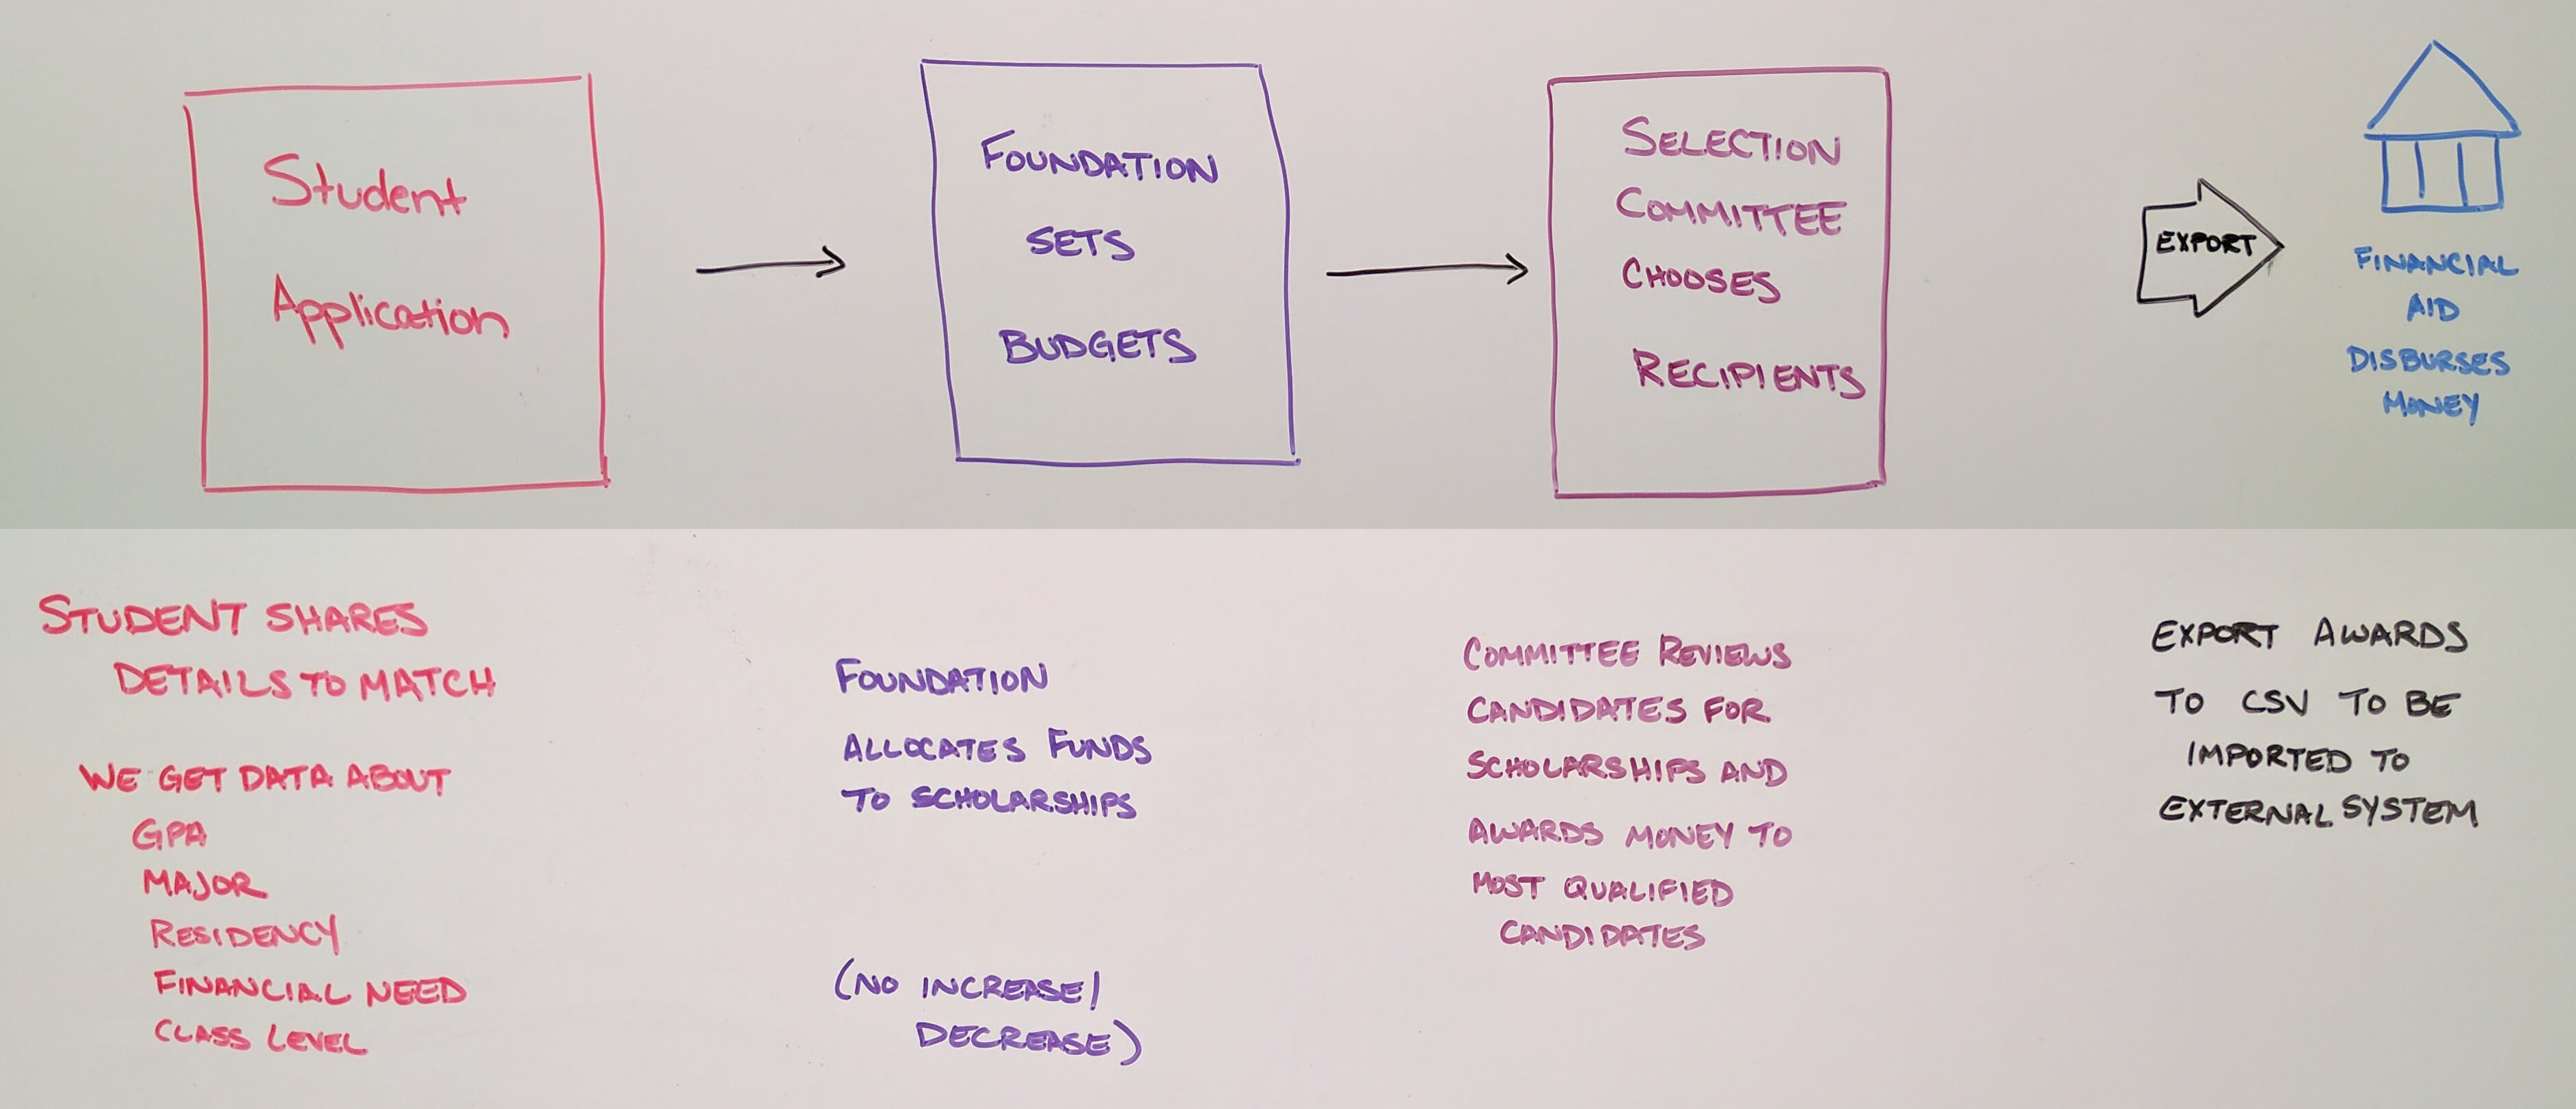 Student
Application
FOUNDATION
SETS
BUDGETS
SELECTION
COMMITTEE
CHOOSES
RECIPIENTS
EXPORT
FINANCIAL
AID
DISBURSES
MONEY
STUDENT SHARES
DETAILS TO MATCH
WE GET DATA ABOUT
GPA
MAJOR
RESIDENCY
FINANCIAL NEED
CLASS LEVEL
FOUNDATION
ALLOCATES FUNDS
TO SCHOLARSHIPS
(NO INCREASE/
DECREASE)
COMMITTEE REVIEWS
CANDIDATES FOR
SCHOLARSHIPS AND
AWARDS MONEY TO
MOST QUALIFIED
CANDIDATES
EXPORT AWARDS
TO CSV TO BE
IMPORTED TO
EXTERNAL SYSTEM